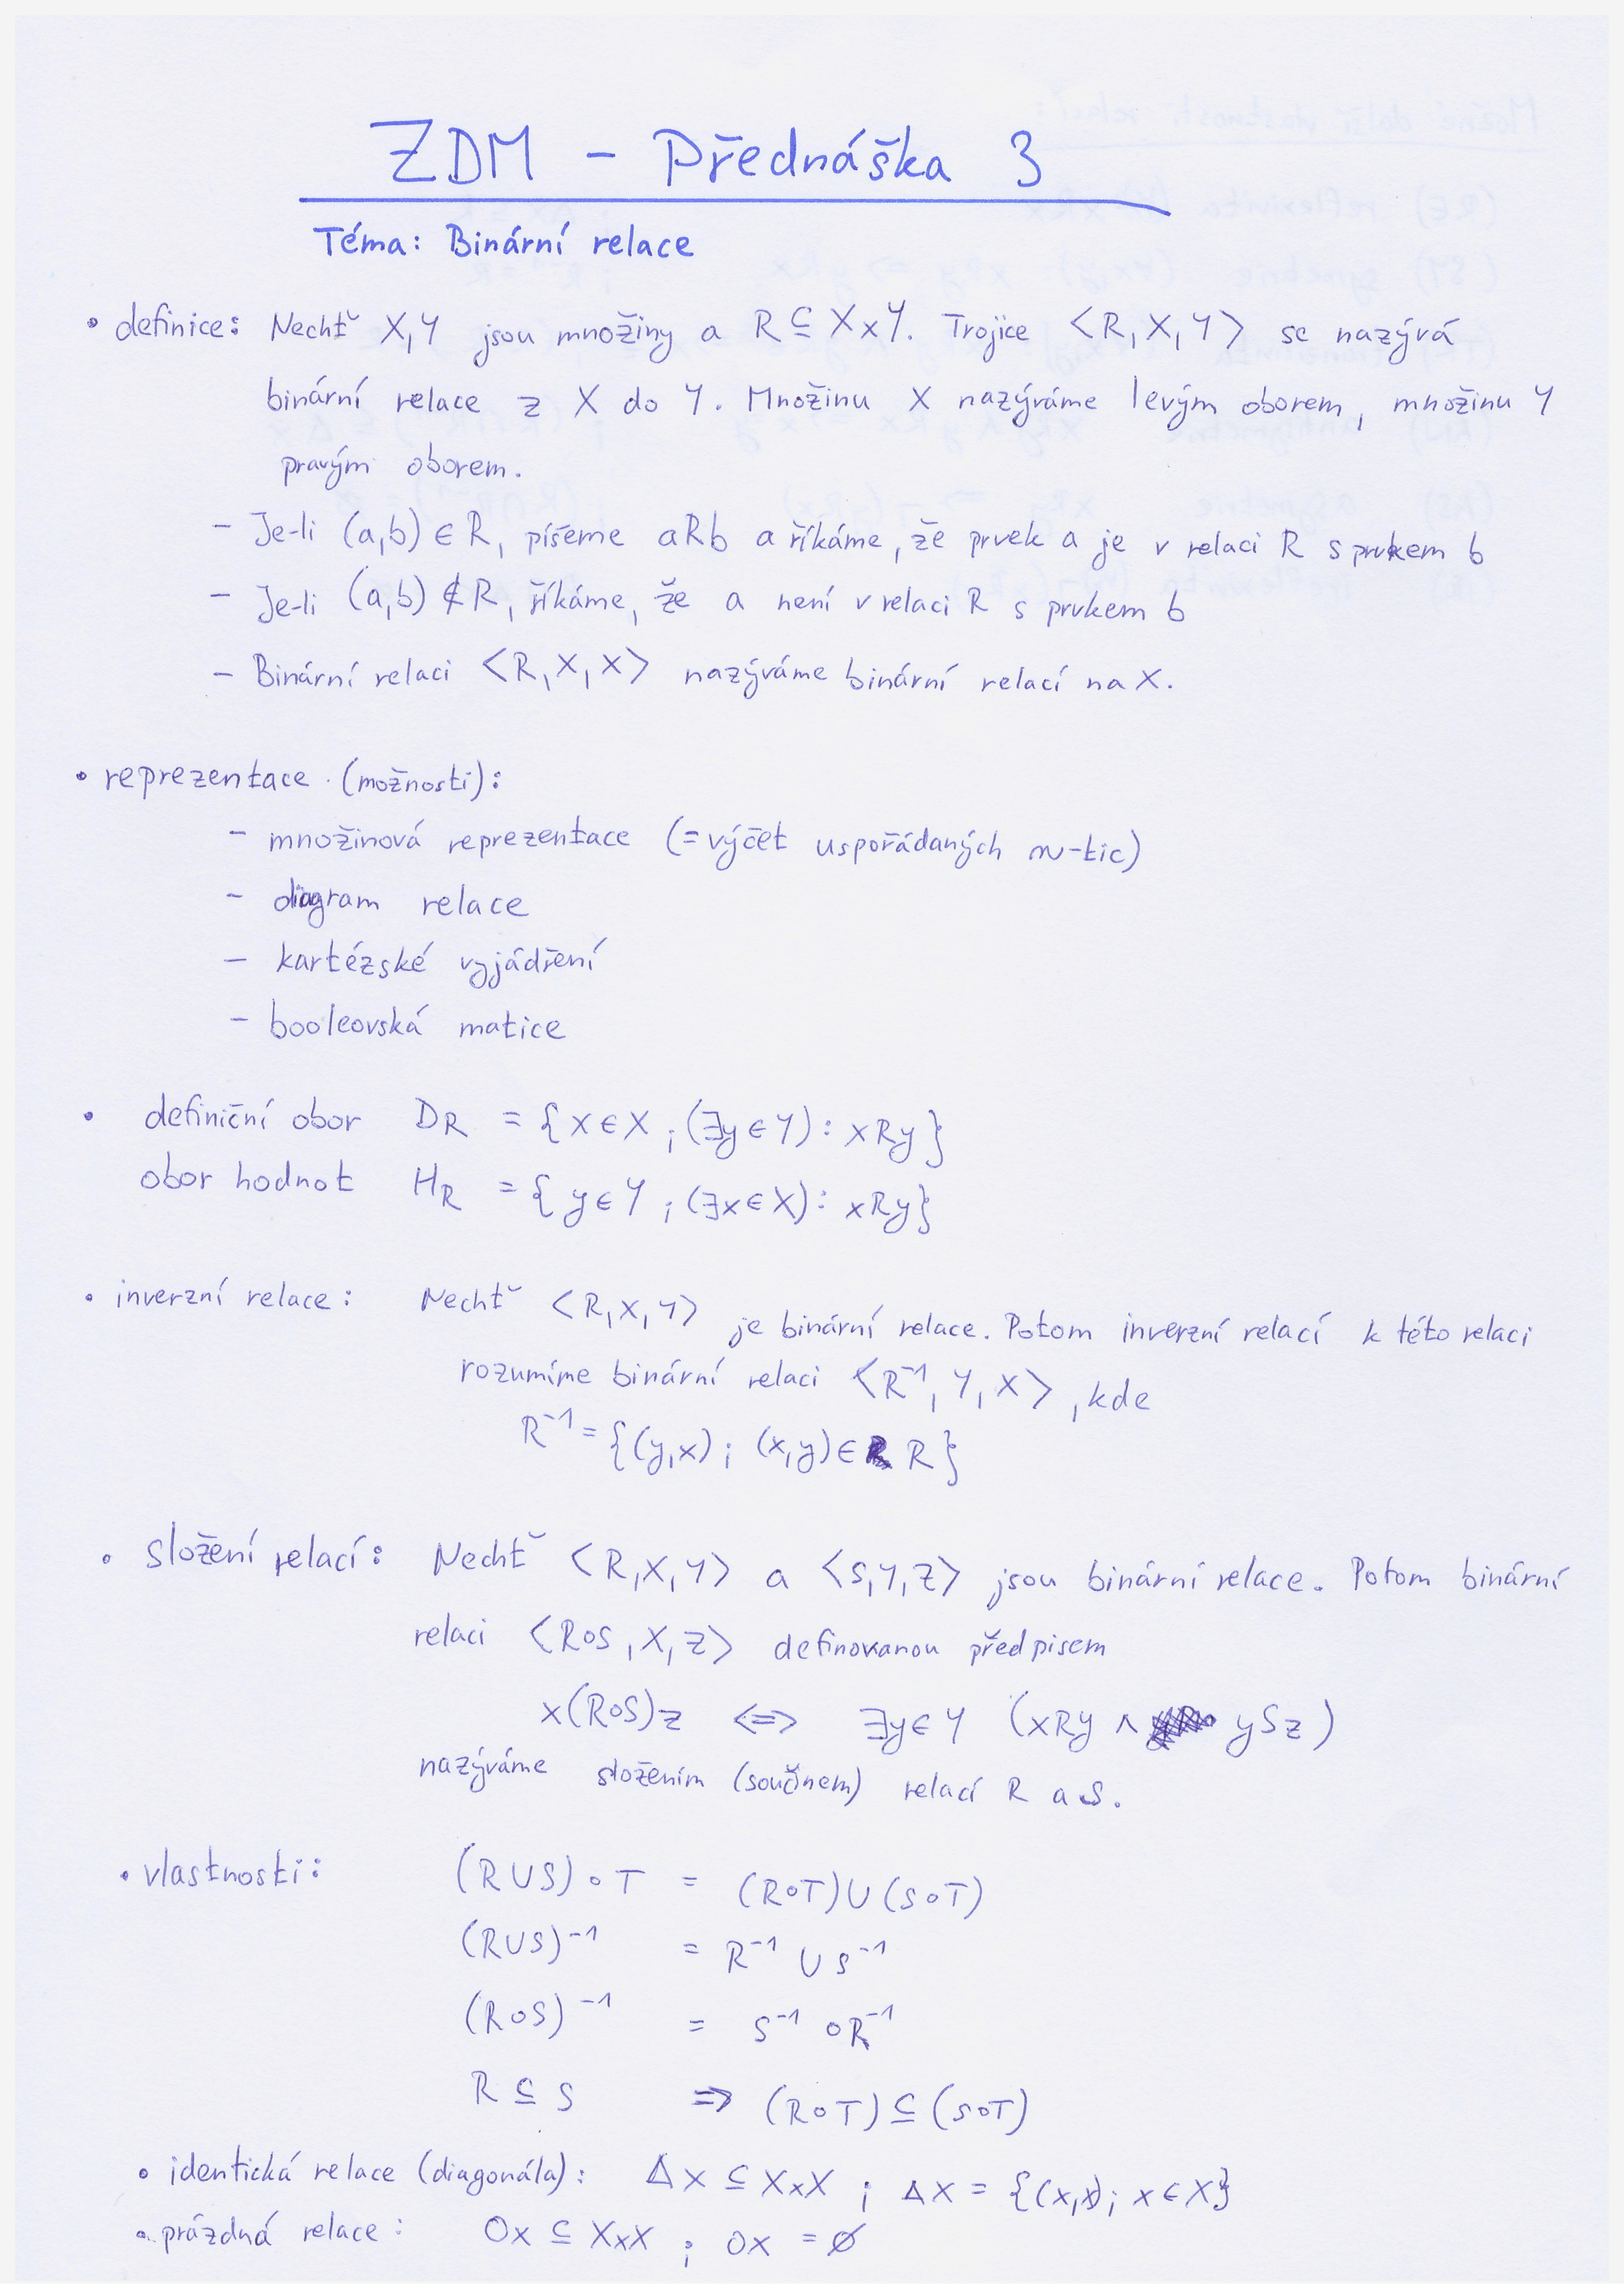 ZDM - Přednáška 3
Téma: Binární relace
• definice: Nechť X,Y jsou množiny a R ⊆ X×Y. Trojice <R,X,Y> se nazývá
binární relace z X do Y. Množinu X nazýváme levým oborem, množinu Y
pravým oborem.
- Je-li (a,b) ∈ R, píšeme aRb a říkáme, že prvek a je v relaci R s prvkem b
- Je-li (a,b) ∉ R, říkáme, že a není v relaci R s prvkem b
- Binární relaci <R,X,X> nazýváme binární relací na X.
• reprezentace (možnosti):
- množinová reprezentace (=výčet uspořádaných n-tic)
- diagram relace
- kartézské vyjádření
- booleovská matice
• definiční obor D_R = {x ∈ X ; (∃y ∈ Y): xRy}
obor hodnot H_R = {y ∈ Y ; (∃x ∈ X): xRy}
• inverzní relace: Nechť <R,X,Y> je binární relace. Potom inverzní relací k této relaci
rozumíme binární relaci <R⁻¹, Y, X>, kde
R⁻¹ = {(y,x) ; (x,y) ∈ R}
• složení relací: Nechť <R,X,Y> a <S,Y,Z> jsou binární relace. Potom binární
relaci <R∘S, X, Z> definovanou předpisem
x(R∘S)z <=> ∃y ∈ Y (xRy ∧ ySz)
nazýváme složením (součinem) relací R a S.
• vlastnosti: (R∪S)∘T = (R∘T)∪(S∘T)
(R∪S)⁻¹ = R⁻¹ ∪ S⁻¹
(R∘S)⁻¹ = S⁻¹ ∘ R⁻¹
R ⊆ S => (R∘T) ⊆ (S∘T)
• identická relace (diagonála): ΔX ⊆ X×X ; ΔX = {(x,x); x ∈ X}
• prázdná relace: OX ⊆ X×X ; OX = ∅